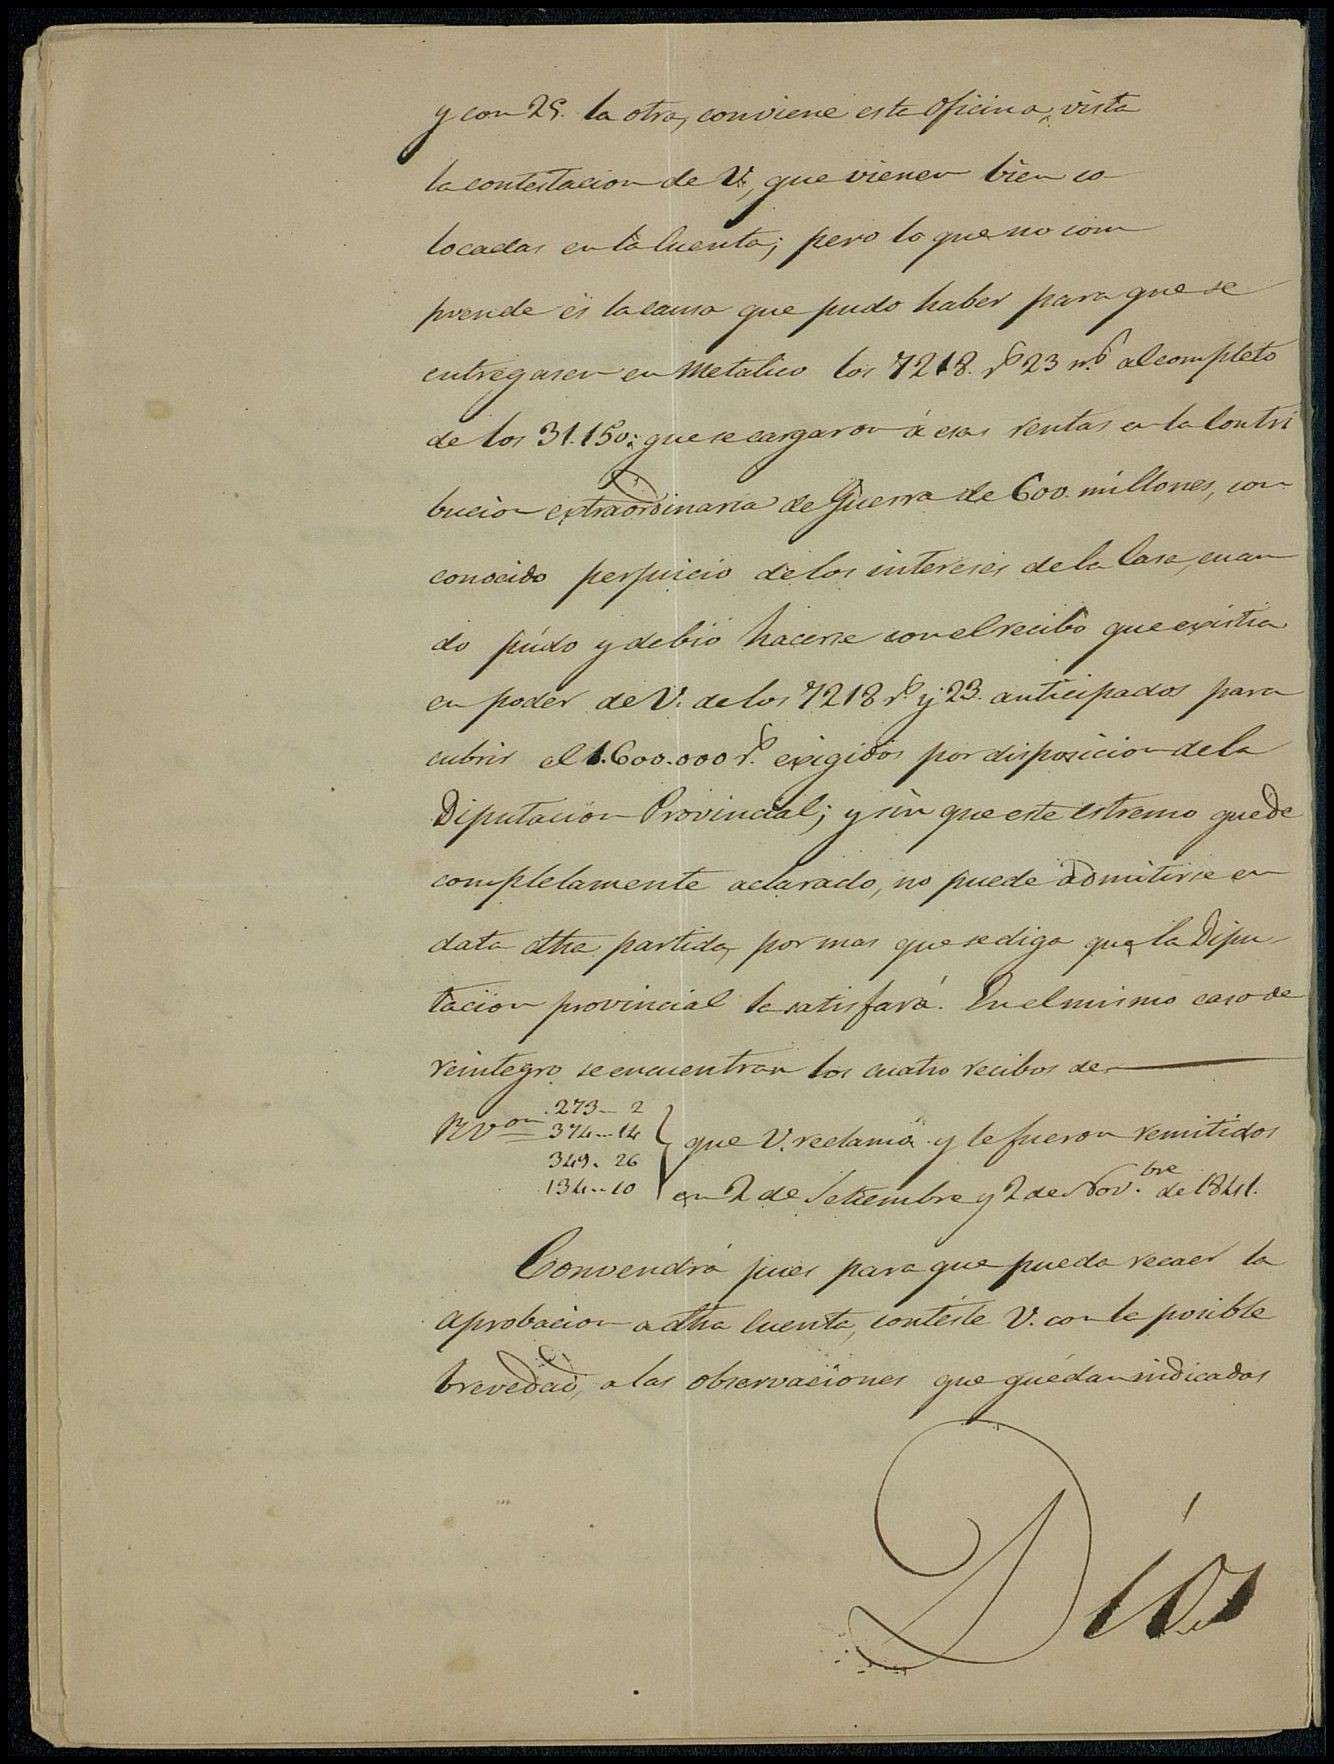 y con 25. la otra, conviene esta Oficina, vista
la contestacion de V., que vienen bien co
locadas en la Cuenta; pero lo que no com
prende es la causa que pudo haber para que se
entregasen en Metalico los 7218. rs 23 ms al completo
de los 31.150; que se cargaron á esas rentas en la Contri
bucion extraordinaria de Guerra de 600. millones, con
conocido perjuicio de los intereses de la Casa, cuan
do pudo y debió hacerse con el recibo que existia
en poder de V. de los 7218 rs. y 23. anticipados para
cubrir el 1.600.000 rs. exigidos por disposicion de la
Diputacion Provincial; y sin que este estremo quede
completamente aclarado, no puede admitirse en
data dha partida, por mas que se diga que la Dipu-
tacion provincial la satisfará. En el mismo caso de
reintegro se encuentran los cuatro recibos de
Rvon 273-- 2
374-- 14
349. 26
134-- 10
que V. reclamó y le fueron remitidos
en 2 de Setiembre y 2 de Nov.bre de 1841.
Convendrá pues para que pueda recaer la
aprobacion a dha Cuenta, conteste V. con la posible
brevedad, a las observaciones que quedan indicadas
Dios